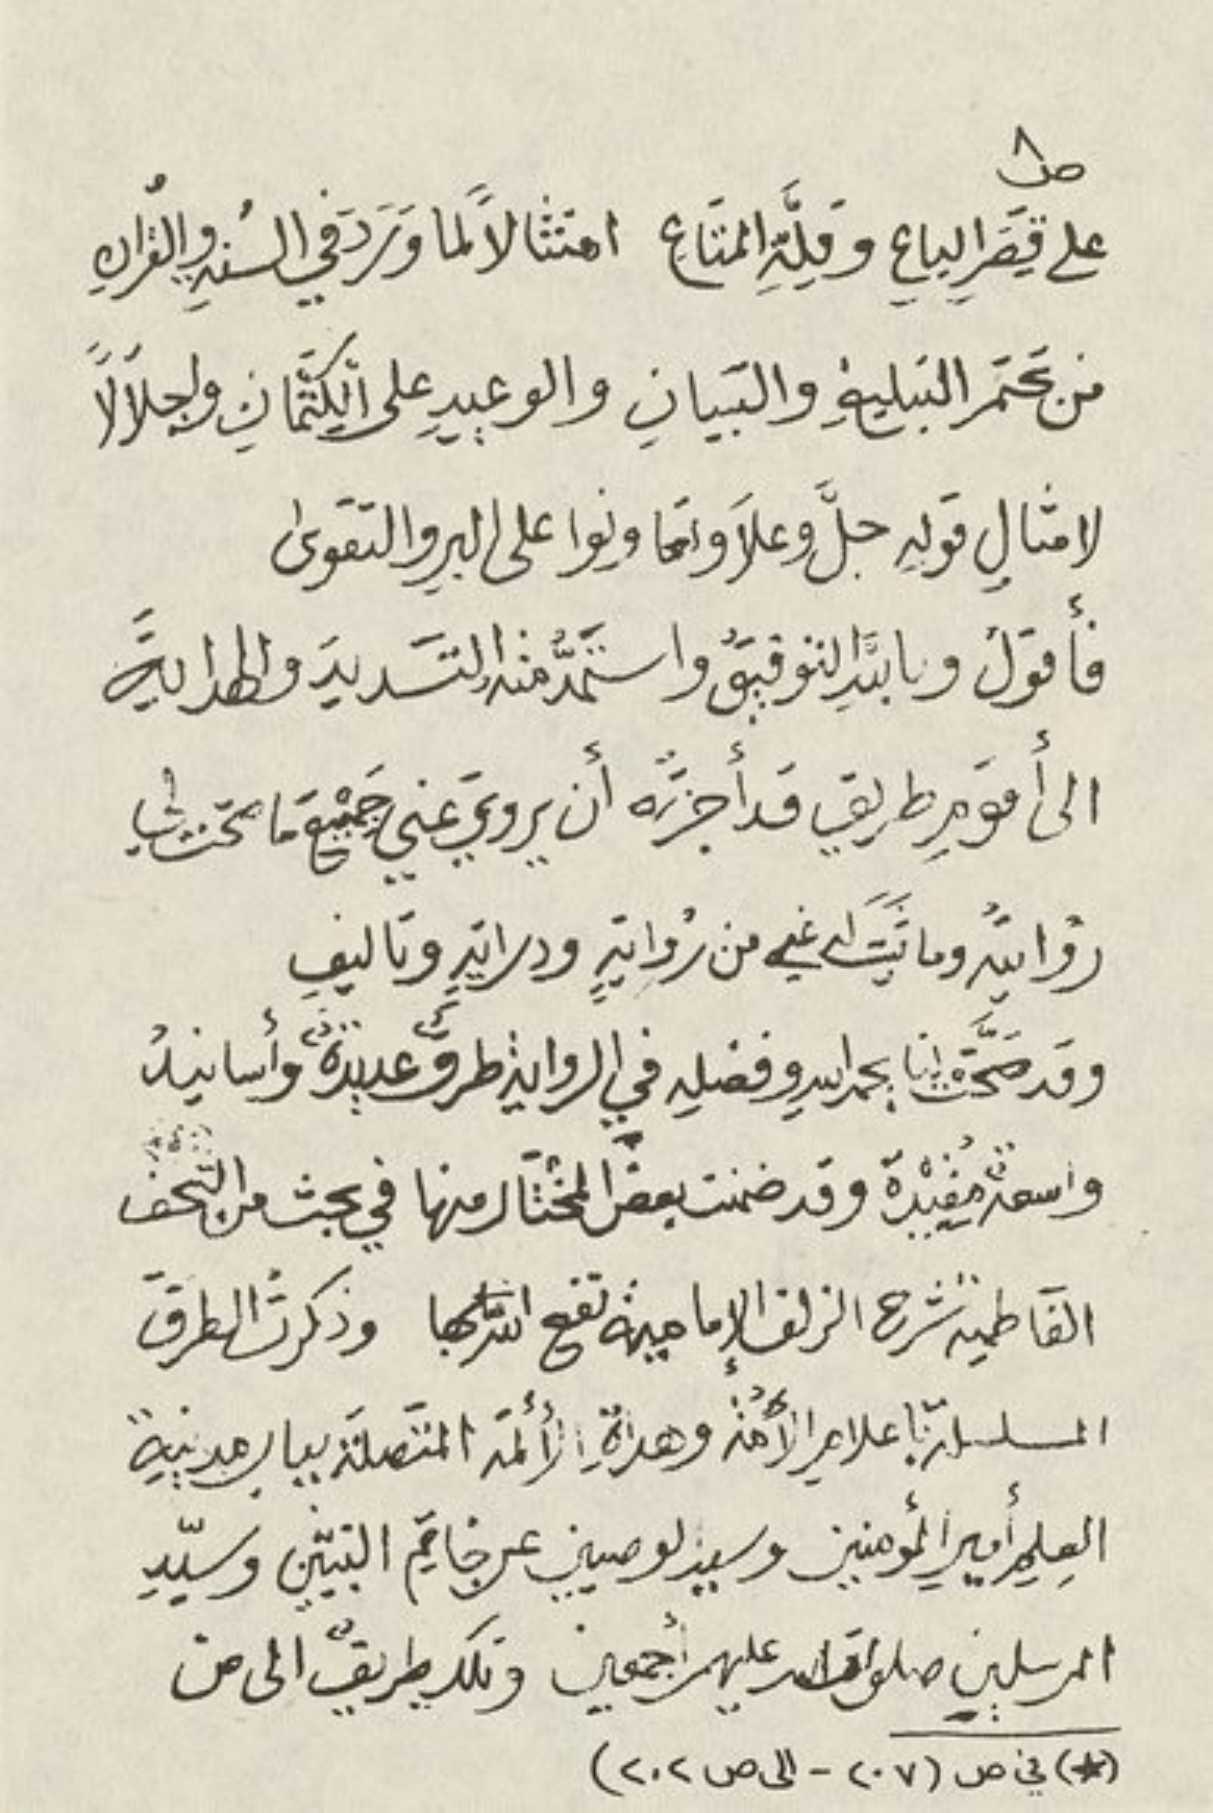 ص ٨
على قِصَرِ الباعِ وقِلَّةِ المتَاعِ امتثالاً لما وَرَدَ في السُنةِ والقُرآنِ
من تحَتم التبليغِ والتَبيانِ والوعيدِ على الكِتْمَانِ وإجلاَلاً
لامتثالِ قولِهِ جلَّ وعلاَ وتعاونوا على البرِ والتقوى
فأقولُ وبالله التوفيقُ واستَمدُّ منه التَسديدَ والهدايةَ
الى أقوَمِ طريقٍ قَد أجزتُه أن يرويَ عني جَمِيْعَ ما صحّت لي
رُوايتُه وما تَيَسَّر لي من رُوِايةٍ ودرايَةٍ وتَاليفٍ
وقَد صَحَّتْ لنا بحمد الله وفضلِهِ في الروايةِ طرقٌ عديدةٌ وأسانيدُ
واسعةٌ مُفِيْدَةٌ وقد ضمنت بعضَ المُخْتَار منها في بحث من التُحَف
الفَاطمية شرح الزلف الإمامية نفع الله بها وذكرتُ الطرقَ
المسلسلةَ بأعلامِ الأُمَّةِ وهداةِ الأَئمَة المتّصلةَ ببابِ مدينةِ
العِلمِ أميرِ المؤمنين وسيد الوصيين عن خاتَمِ النبيّين وسيّدِ
المرسلين صلوات الله عليهم أجمعين وتلك طريقٌ الى من
(*) في ص (٢٠٧ - الى ص ٢٠٢)